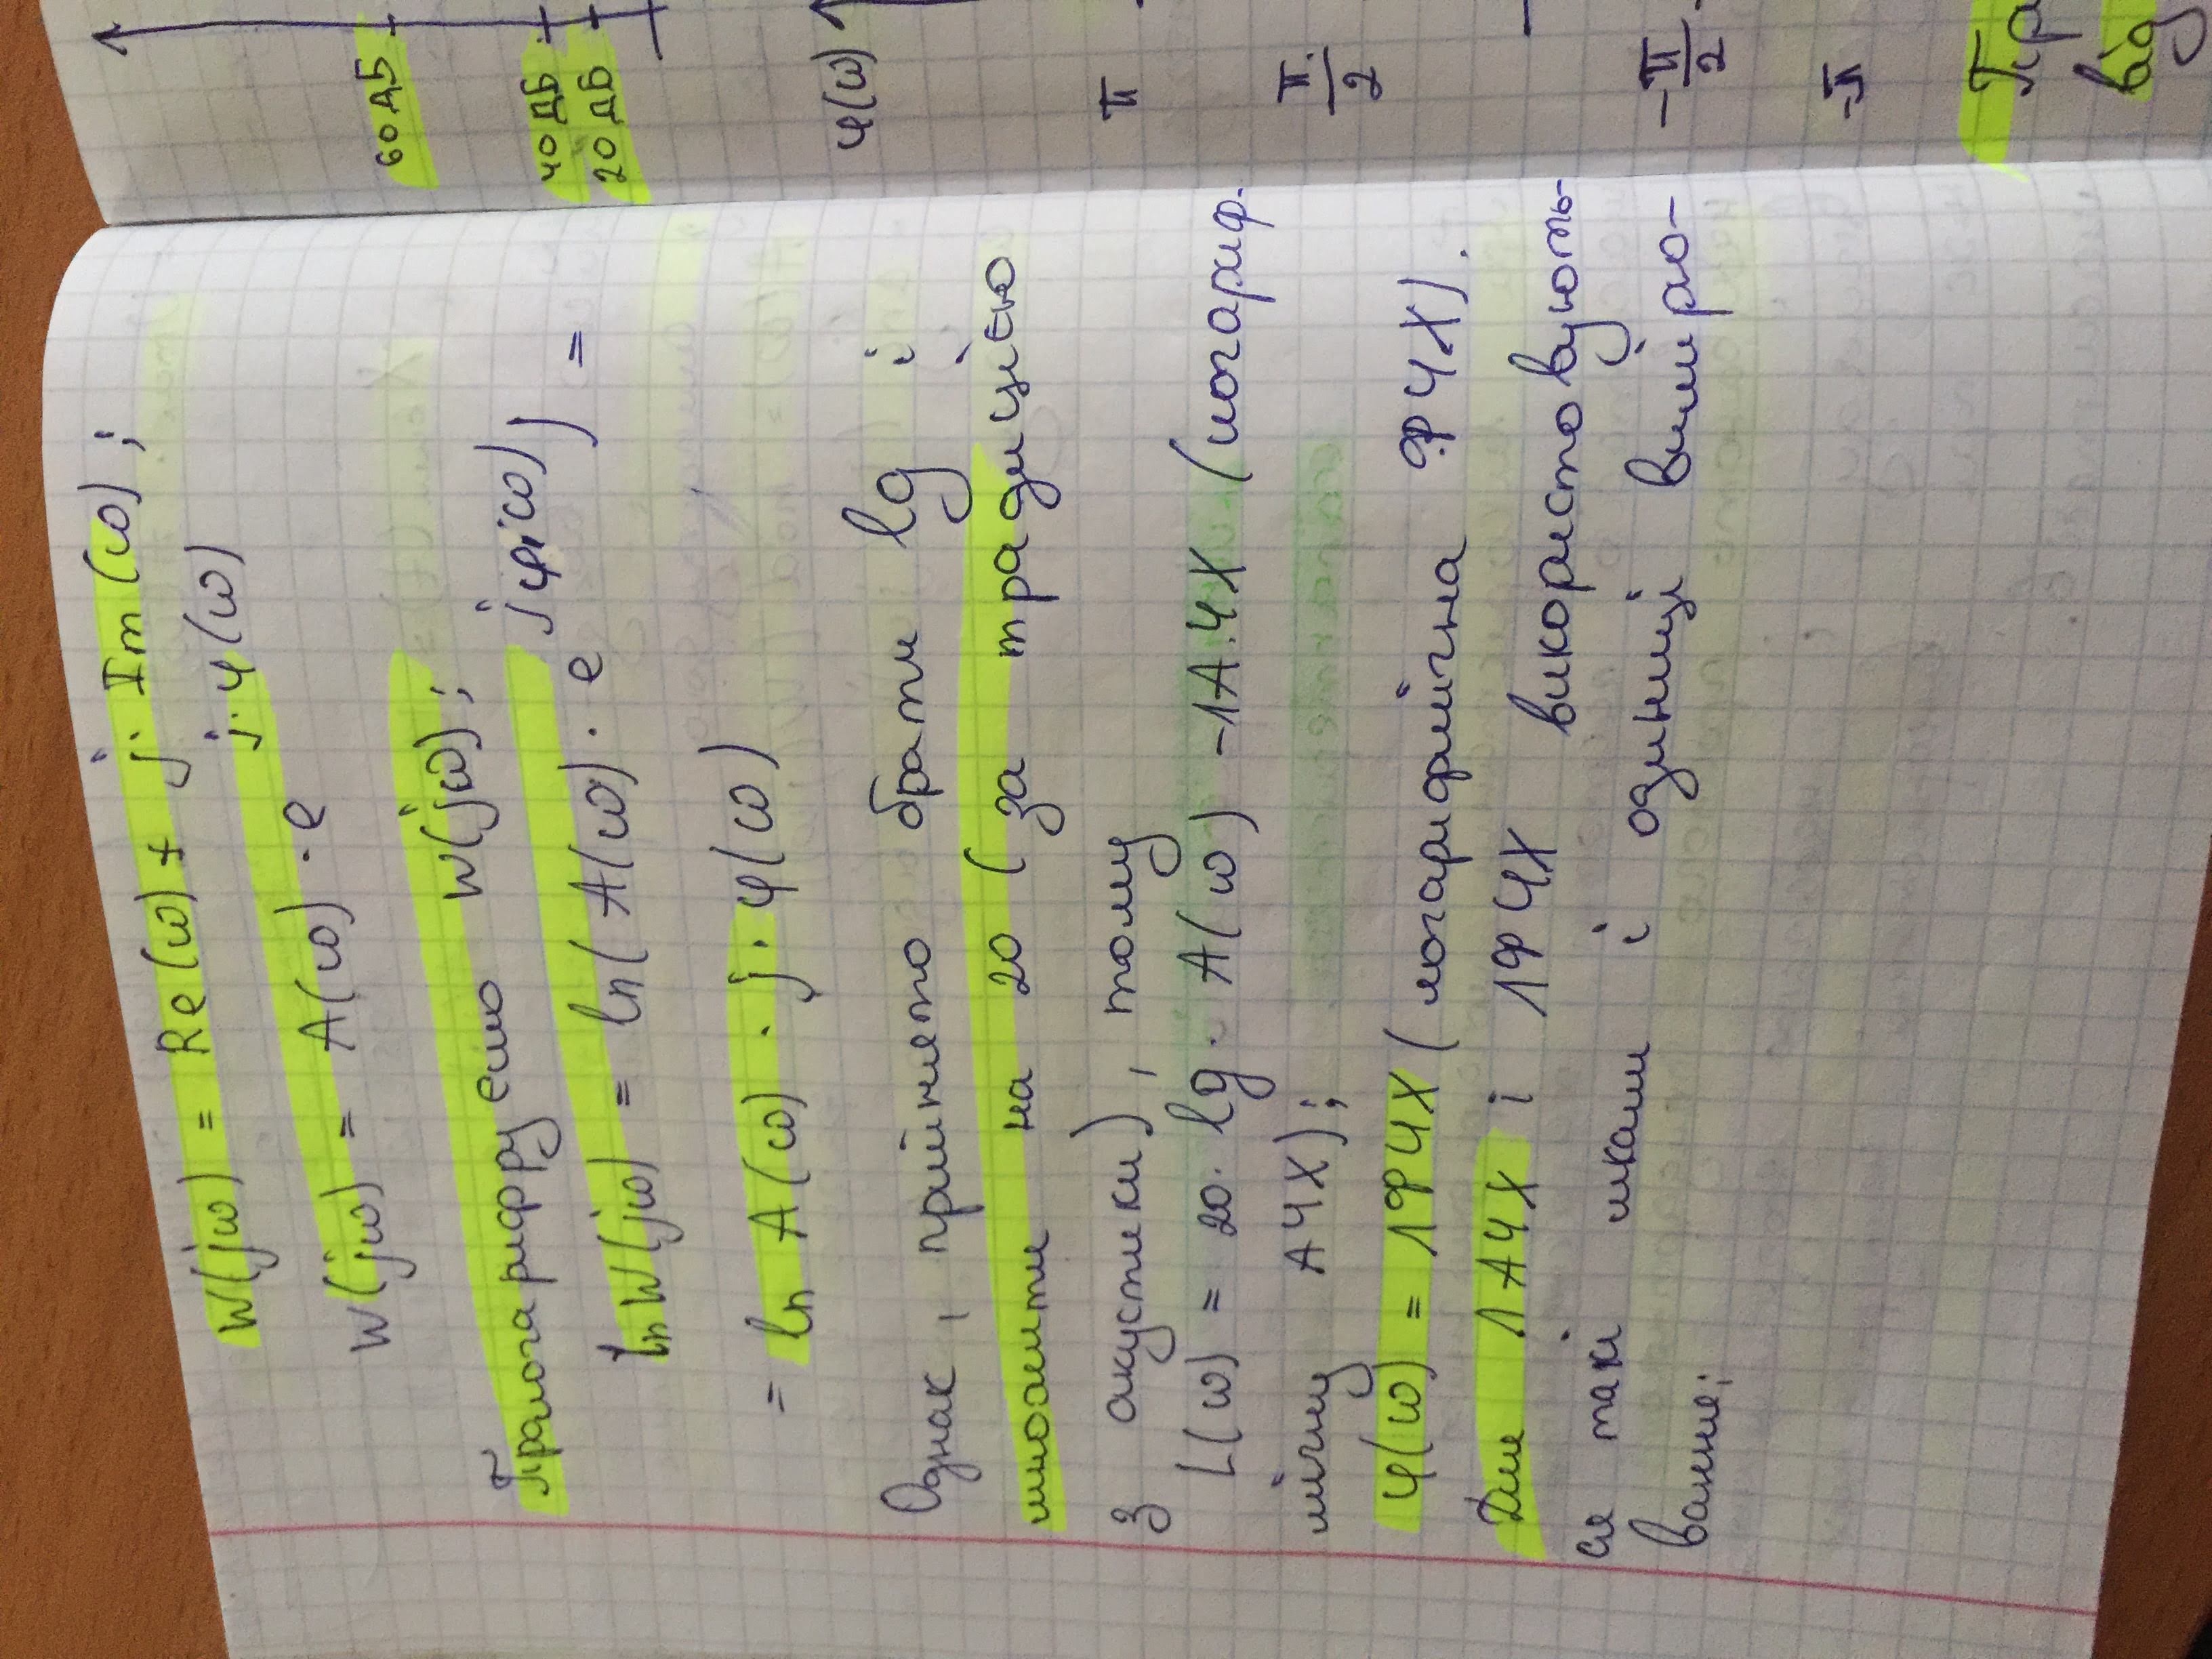 W(jω) = Re(ω) + j· Im(ω);
W(jω) = A(ω) · e^{j·φ(ω)}
Прологарифруємо W(jω);
ln W(jω) = ln(A(ω) · e^{jφ(ω)}) =
= ln A(ω) · j· φ(ω)
Однак, прийнято брати lg і
множити на 20 (за традицією
з акустики), тому
L(ω) = 20· lg· A(ω) - ΛА.ЧХ (логариф-
мічну АЧХ);
φ(ω) = ΛФЧХ (логарифмічна ФЧХ).
Для ΛАЧХ і ΛФЧХ використовують-
ся такі шкали і одиниці вимірю-
вання;
60 дБ
40 дБ
20 дБ
φ(ω)
π
π/2
-π/2
-π
Пр
від